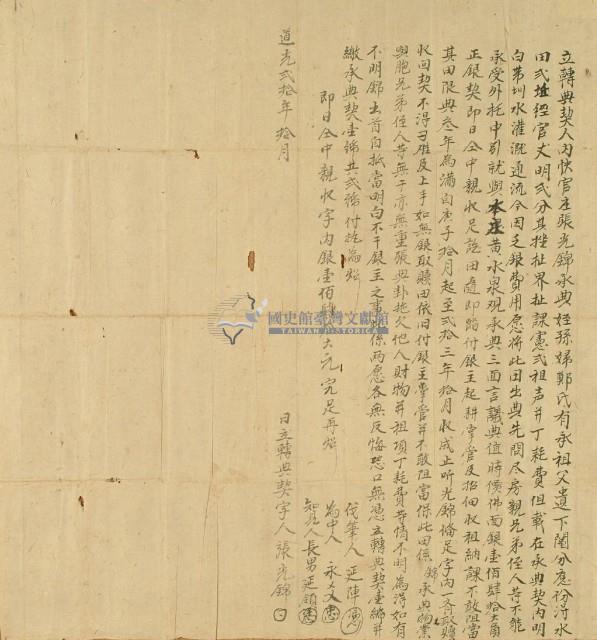 立轉典契人內快官庄張光錦承典姪孫婦鄭氏有承祖父遺下鬮分應份浮水
田弍坵經官丈明弍分其挫址界址課憲弍祖声并丁耗費俱載在承典契內明
白帶圳水灌溉通流今因乏銀費用愿將此田出典先問尽房親兄弟侄人等不能
承受外托中引就與本庄黃水泉观承典三面言議典值時價佛面銀壹佰肆拾大員
正銀契即日仝中親收足訖田隨即踏付銀主起耕掌管及招佃收租納課不敢阻當
其田限典叁年為滿自庚子拾月起至弍拾三年拾月收成止听光錦俻足字內一齊取贖
收回契不得刁难及上手如無銀取贖田依旧付銀主掌管并不敢阻當保此田係錦承典物業
與胞兄弟侄人等無干亦無重張典卦拖欠他人財物并祖項丁耗費等情不明為碍如有
不明錦出首自抵當明白不干銀主之事此係兩愿各無反悔恐口無憑立轉典契壹紙并
繳承典契壹紙共弍紙付執為炤
即日仝中親收字內銀壹佰肆拾大元完足再炤
伐筆人延陣
為中人永文
知見人長男延鎮
道光弍拾年拾月 日立轉典契字人張光錦
國史館臺灣文獻館
TAIWAN HISTORICA